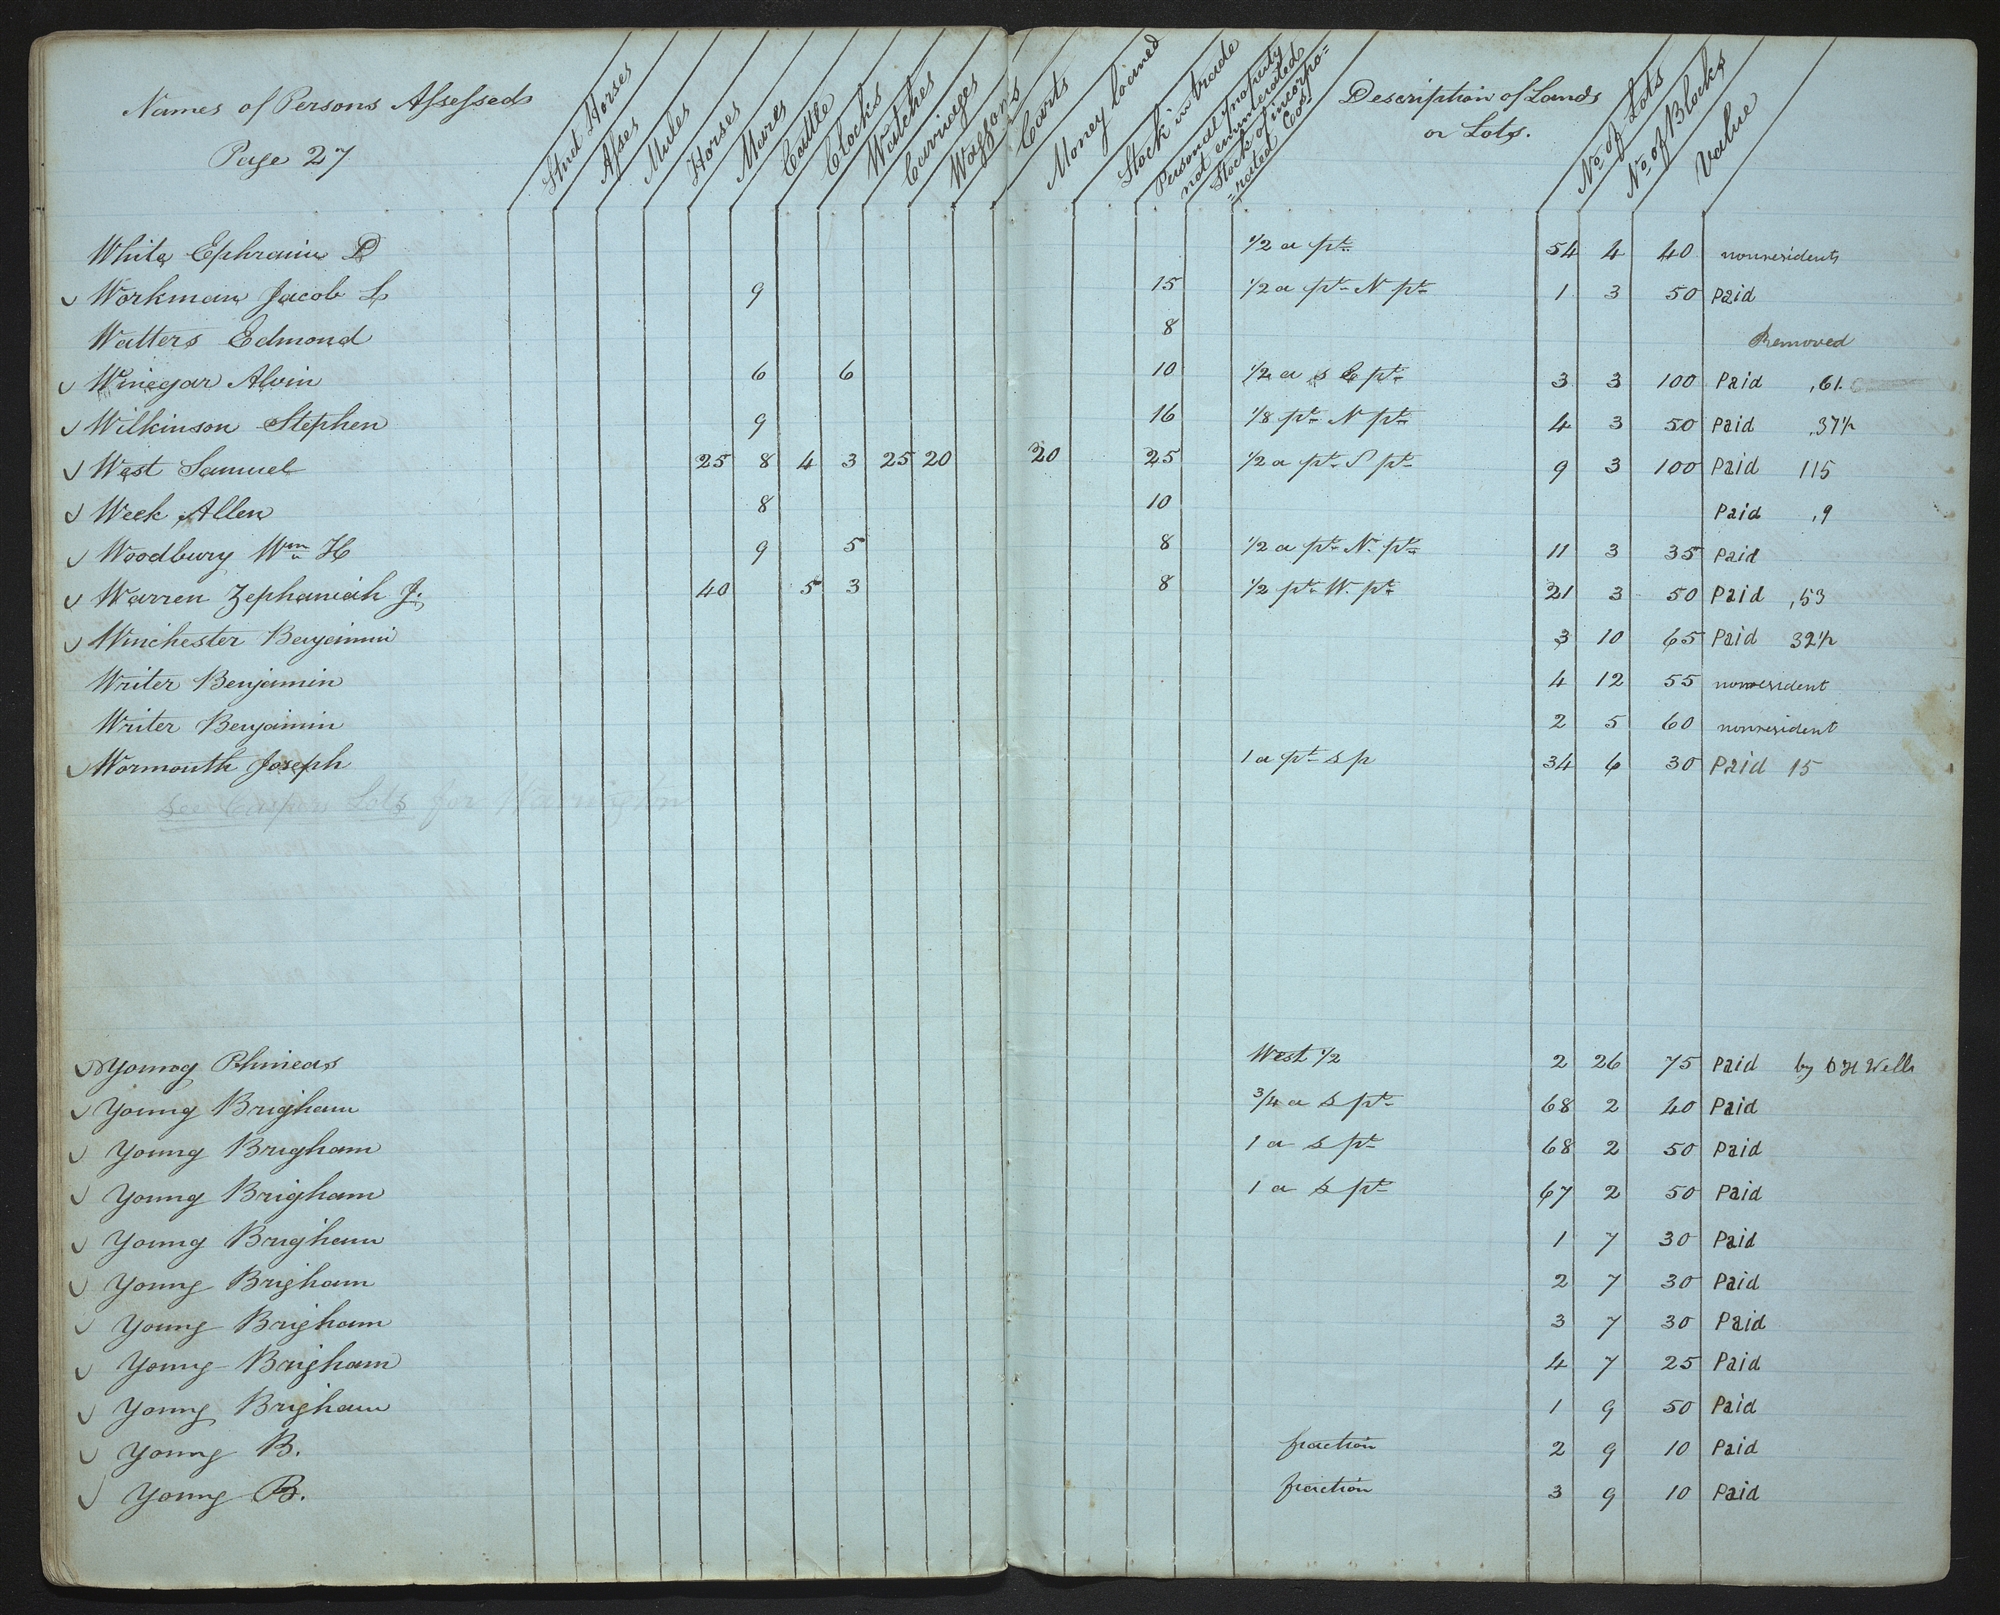 Names of Persons Assessed
Page 27
Stud Horses
Asses
Mules
Horses
Mares
Cattle
Clocks
Watches
Carriages
Waggons
Carts
Money loaned
Stock in trade
Personal property not enumerated
Stock of incorpo=
=rated Cos.
Description of Lands
or Lots.
No. of Lots
No. of Blocks
Value
White Ephraim D 1/2 a pt. 54 4 40 nonresidents
Workman Jacob L 9 15 1/2 a pt. N pt. 1 3 50 Paid
Watters Edmond 8 Removed
Winegar Alvin 6 6 10 1/2 a S E pt. 3 3 100 Paid ,61
Wilkinson Stephen 9 16 1/8 pt. N pt. 4 3 50 Paid .37 1/2
West Samuel 25 8 4 3 25 20 20 25 1/2 a pt. S pt. 9 3 100 Paid 115
Week Allen 8 10 Paid ,9
Woodbury Wm H 9 5 8 1/2 a pt. N. pt. 11 3 35 Paid
Warren Zephaniah J. 40 5 3 8 1/2 pt. W. pt. 21 3 50 Paid ,53
Winchester Benjamin 3 10 65 Paid 32 1/2
Writer Benjamin 4 12 55 nonresident
Writer Benjamin 2 5 60 nonresident
Wormouth Joseph 1 a pt. S p 34 6 30 Paid 15
See Lots for
Young Phineas West 1/2 2 26 75 Paid by D H Wells
Young Brigham 3/4 a S pt. 68 2 40 Paid
Young Brigham 1 a S pt. 68 2 50 Paid
Young Brigham 1 a S pt. 67 2 50 Paid
Young Brigham 1 7 30 Paid
Young Brigham 2 7 30 Paid
Young Brigham 3 7 30 Paid
Young Brigham 4 7 25 Paid
Young Brigham 1 9 50 Paid
Young B. fraction 2 9 10 Paid
Young B. fraction 3 9 10 Paid